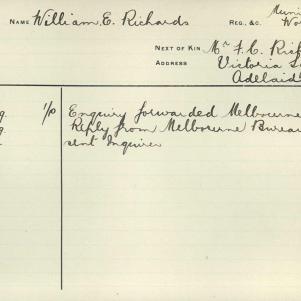 NAME William E. Richards REG. &C. Muni
Wor
NEXT OF KIN Mr F. C. Rich
ADDRESS Victoria S
Adelaid
1/P Enquiry forwarded Melbourne
Reply from Melbourne Bureau
sent Inquirer